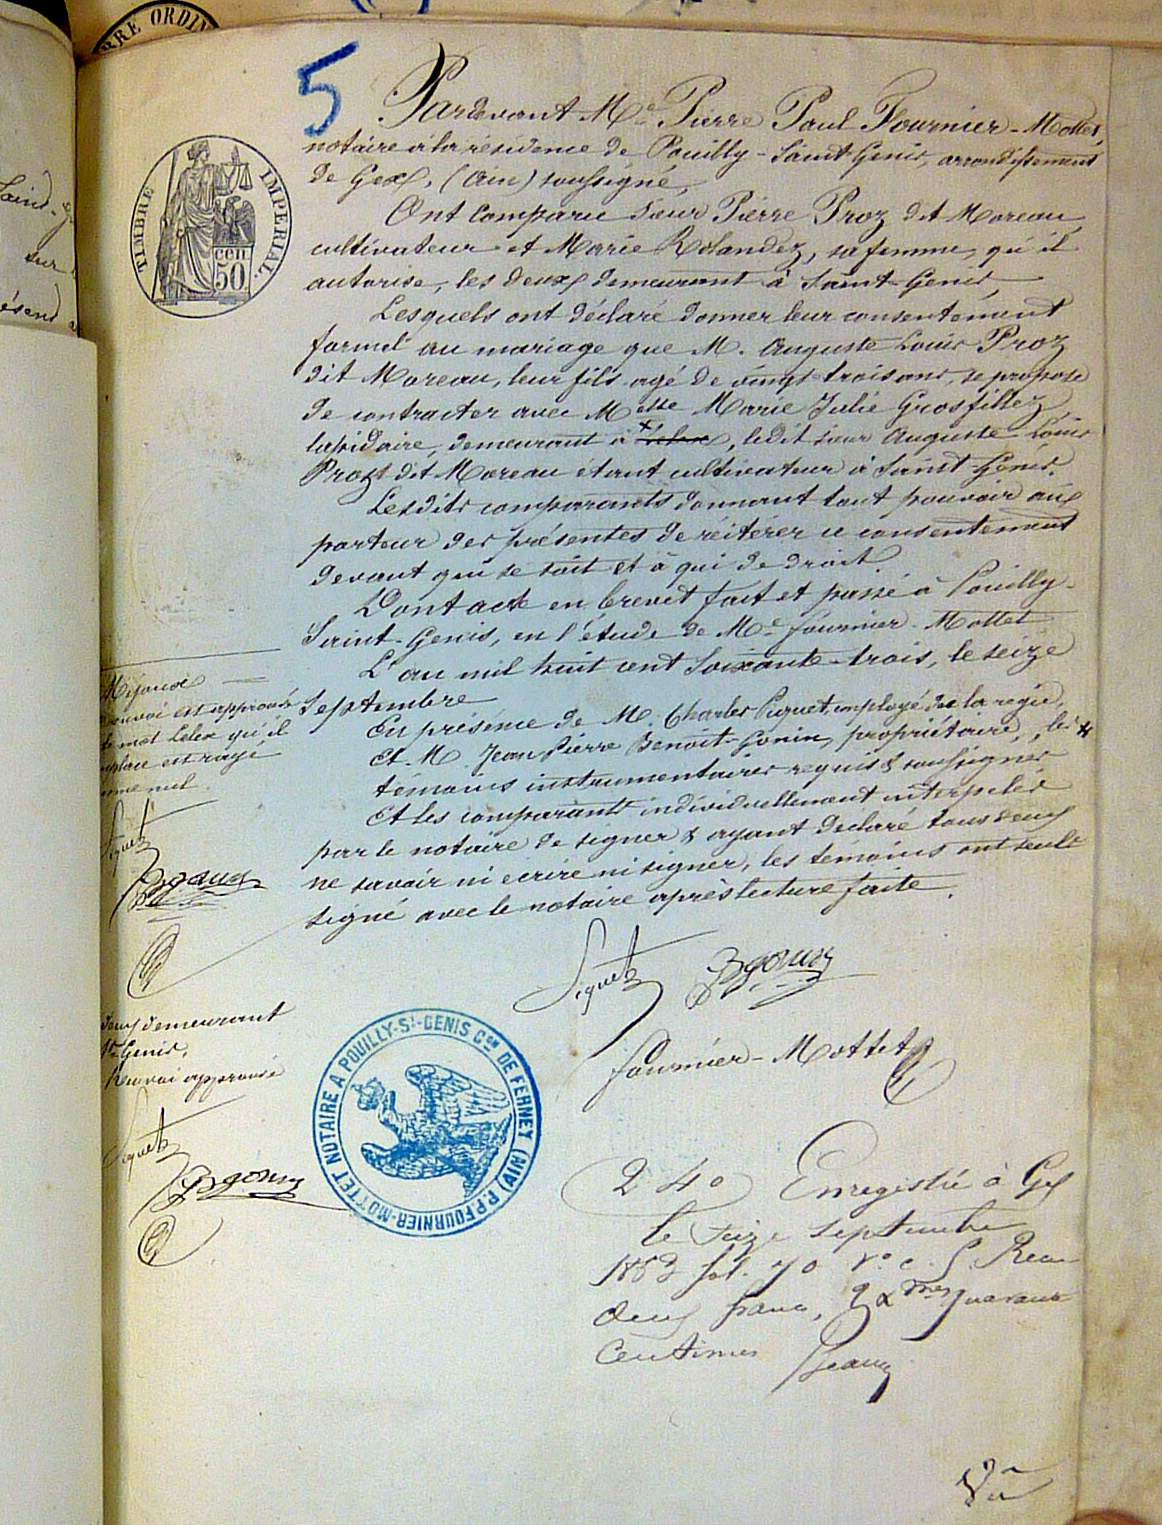 5
TIMBRE IMPERIAL.
cen
50
Pardevant Me Pierre Paul Fournier-Mottet,
notaire à la résidence de Pouilly-Saint-Genis, arrondissement
de Gex, (Ain) soussigné,
Ont comparu sieur Pierre Proz dit Moreau,
cultivateur et Marie Rolandez, sa femme, qu'il
autorise, les deux demeurant à Saint-Genis,
Lesquels ont déclaré donner leur consentement
formel au mariage que M. Auguste Louis Proz
dit Moreau, leur fils agé de vingt-trois ans, se propose
de contracter avec Melle Marie Julie Grosfillez
lapidaire, demeurant à Lelex, ledit sieur Auguste Louis
Proz dit Moreau étant cultivateur à Saint-Genis.
Lesdits comparants donnant tout pouvoir aux
porteur des présentes de réitérer ce consentement
devant qui se soit et à qui de droit.
Dont acte en brevet fait et passé à Pouilly-
Saint-Genis, en l'étude de Me Fournier-Mottet
L'an mil huit cent soixante-trois, le seize
Septembre
En présence de M. Charles Piquet, employé de la régie,
Et M. Jean Pierre Benoit-Gonin, propriétaire, les *
témoins instrumentaires requis & soussignés
Et les comparants individuellement interpelés
par le notaire de signer & ayant déclaré tous deux
ne savoir ni écrire ni signer, les témoins ont seuls
signé avec le notaire après lecture faite.
Mijoux
renvoi est approuvé
le mot Lelex qu'il
est rayé
nul.
Piquet
Bgonin
deux demeurant
St Genis,
Renvoi approuvé
Piquet
Bgonin
Piquet Bgonin
Fournier-Mottet
P.P. FOURNIER-MOTTET NOTAIRE A POUILLY-ST-GENIS Con DE FERNEY (AIN)
2 40 Enregistré à Gex
le seize septembre
1863 fol. 70 Vo c. 5. Reçu
deux francs, quarante
centimes
Vu